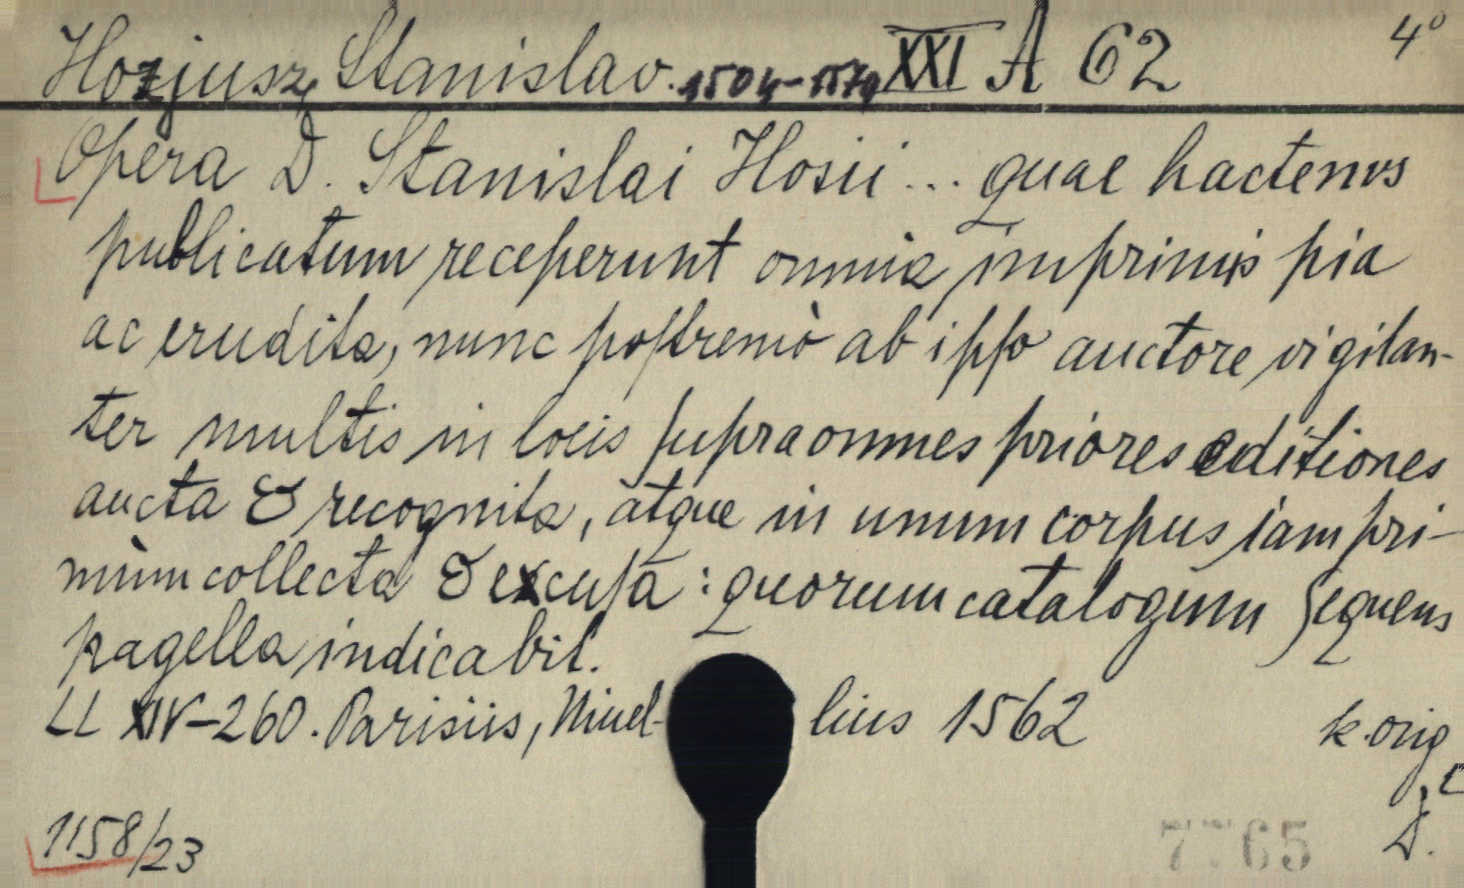 Hozjusz Stanislav. 1504-1579 XXI A 62 4°
Opera D. Stanislai Hosii ... quae hactenus
publicatum receperunt omnia imprimis pia
ac erudita, nunc poſtremò ab ipſo auctore vigilan-
ter multis in locis ſupra omnes priores editiones
aucta & recognita, atque in unum corpus iam pri-
mùm collecta & excuſa: quorum catalogum ſequens
pagella indicabit.
LL XIV-260. Parisiis, Nivel- lius 1562 k. orig
1158/23 7765 D.